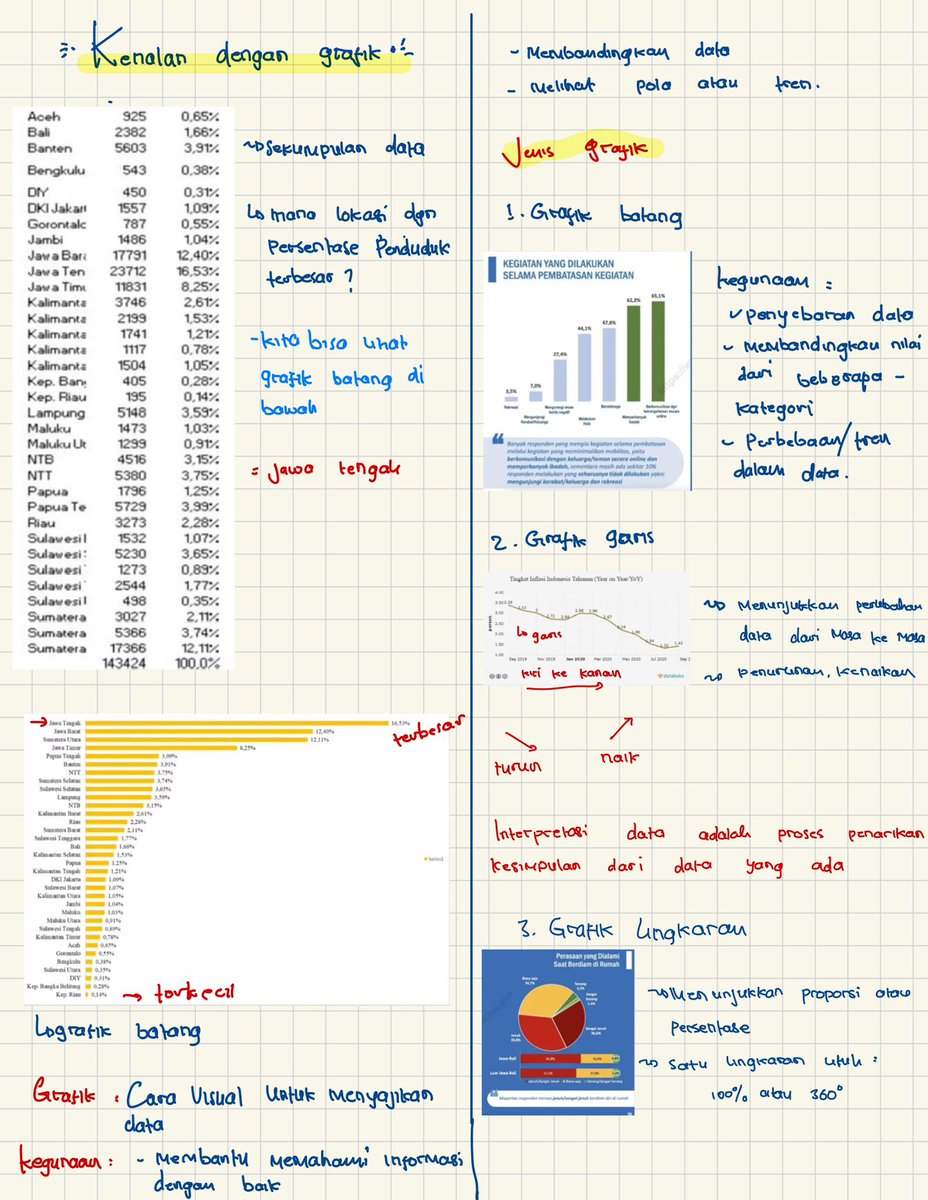 Kenalan dengan grafik
Aceh 925 0,65%
Bali 2382 1,66%
Banten 5603 3,91%
Bengkulu 543 0,38%
DIY 450 0,31%
DKI Jakart 1557 1,09%
Gorontalc 787 0,55%
Jambi 1486 1,04%
Jawa Bara 17791 12,40%
Jawa Ten 23712 16,53%
Jawa Timu 11831 8,25%
Kalimanta 3746 2,61%
Kalimanta 2199 1,53%
Kalimanta 1741 1,21%
Kalimanta 1117 0,78%
Kalimanta 1504 1,05%
Kep. Ban 405 0,28%
Kep. Riau 195 0,14%
Lampung 5148 3,59%
Maluku 1473 1,03%
Maluku Ut 1299 0,91%
NTB 4516 3,15%
NTT 5380 3,75%
Papua 1796 1,25%
Papua Te 5729 3,99%
Riau 3273 2,28%
Sulawesi 1532 1,07%
Sulawesi 5230 3,65%
Sulawesi 1273 0,89%
Sulawesi 2544 1,77%
Sulawesi 498 0,35%
Sumatera 3027 2,11%
Sumatera 5366 3,74%
Sumatera 17366 12,11%
143424 100,0%
sekumpulan data
mana lokasi dgn
persentase penduduk
terbesar ?
- kita bisa lihat
grafik batang di
bawah
= jawa tengah
Jawa Tengah 16,53%
terbesar
Jawa Barat 12,40%
Sumatera Utara 12,11%
Jawa Timur 8,25%
Papua Tengah 3,99%
Banten 3,91%
NTT 3,75%
Sumatera Selatan 3,74%
Sulawesi Selatan 3,65%
Lampung 3,59%
NTB 3,15%
Kalimantan Barat 2,61%
Riau 2,28%
Sumatera Barat 2,11%
Sulawesi Tenggara 1,77%
Bali 1,66%
Kalimantan Selatan 1,53%
Papua 1,25%
Kalimantan Tengah 1,21%
DKI Jakarta 1,09%
Sulawesi Barat 1,07%
Kalimantan Utara 1,05%
Jambi 1,04%
Maluku 1,03%
Maluku Utara 0,91%
Sulawesi Tengah 0,89%
Kalimantan Timur 0,78%
Aceh 0,65%
Gorontalo 0,55%
Bengkulu 0,38%
Sulawesi Utara 0,35%
DIY 0,31%
Kep. Bangka Belitung 0,28%
Kep. Riau 0,14%
Series1
terkecil
grafik batang
Grafik : Cara visual untuk menyajikan
data
kegunaan : - membantu memahami informasi
dengan baik
- Membandingkan data
- Melihat pola atau tren.
Jenis grafik
1. Grafik batang
KEGIATAN YANG DILAKUKAN
SELAMA PEMBATASAN KEGIATAN
3,5%
7,0%
27,4%
44,1%
47,8%
62,2%
65,1%
Rekreasi
Mengunjungi Kerabat/Keluarga
Melakukan Hobi
Berolahraga
Memperbanyak Ibadah
Berkomunikasi dengan keluarga/teman secara online
Banyak responden yang mengisi kegiatan selama pembatasan
melalui kegiatan yang meminimalkan mobilitas, yaitu
berkomunikasi dengan keluarga/teman secara online dan
memperbanyak ibadah, sementara masih ada sekitar 10%
responden melakukan yang seharusnya tidak dilakukan yakni
mengunjungi kerabat/keluarga dan rekreasi
kegunaan :
penyebaran data
Membandingkan nilai
dari beberapa -
kategori
Perbebaan/tren
dalam data.
2. Grafik garis
Tingkat Inflasi Indonesia Tahunan (Year on Year/YoY)
4.00
3.50
3.00
2.50
2.00
1.50
1.00
persen
garis
Sep 2019 Nov 2019 Jan 2020 Mar 2022 May 2020 Jul 2020 Sep 2
databoks
kiri ke kanan
Menunjukkan perubahan
data dari masa ke masa
penurunan, kenaikan
turun
naik
Interpretasi data adalah proses penarikan
kesimpulan dari data yang ada
3. Grafik lingkaran
Perasaan yang Dialami
Saat Berdiam di Rumah
Biasa saja
Senang
Sangat Senang
Sangat Jenuh
Jenuh
Jawa Bali
Luar Jawa Bali
Jenuh/Sangat Jenuh Biasa saja Senang/Sangat Senang
Mayoritas responden merasa jenuh/sangat jenuh berdiam diri di rumah
Menunjukkan proporsi atau
persentase
satu lingkaran utuh :
100% atau 360°